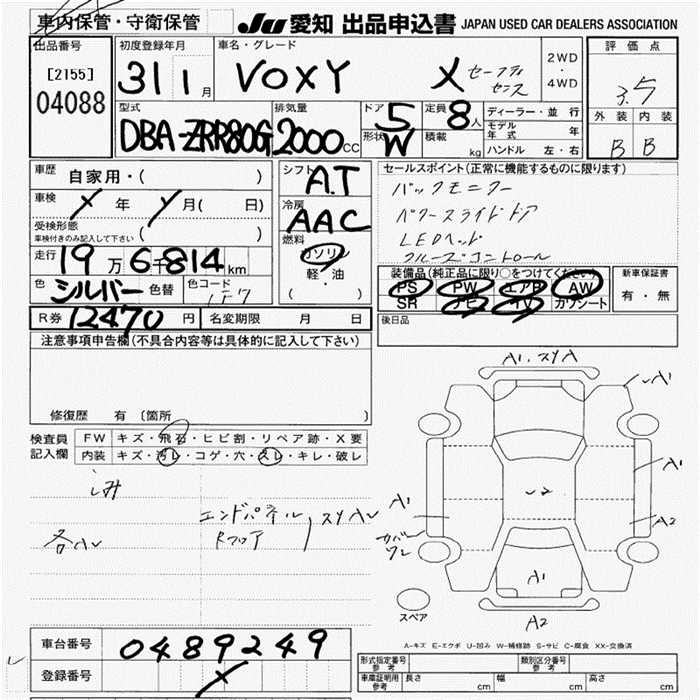 車内保管・守衛保管
JU 愛知 出品申込書 JAPAN USED CAR DEALERS ASSOCIATION
出品番号
[2155]
04088
初度登録年月
31 1月
車名・グレード
VOXY
X セーフティ
センス
2WD
・
4WD
評価点
3.5
外装 内装
B B
型式
DBA-ZRR80G
排気量
2000cc
ドア 5
形状 W
定員 8人
積載 kg
ディーラー・並行
モデル年式 年
ハンドル 左・右
車歴 自家用・( )
車検 X年 月( 日)
受検形態
車検付きのみ記入して下さい ( )
走行 19万6千814km
色 シルバー 色替 色コード 1F7
R券 12470円 名変期限 月 日
シフト
A.T
冷房
AAC
燃料
ガソリン
軽・油
( )
セールスポイント(正常に機能するものに限ります)
バックモニター
パワースライドドア
LEDヘッド
クルーズコントロール
装備品(純正品に限り○をつけてください)
PS PW エアB AW
SR ナビ TV カワシート
新車保証書
有・無
後日品
注意事項申告欄(不具合内容等は具体的に記入して下さい)
修復歴 有 〔箇所 〕
検査員
記入欄
FW キズ・飛石・ヒビ割・リペア跡・X要
内装 キズ・汚レ・コゲ・穴・スレ・キレ・破レ
シミ
各AU
エンドパネル
Rフロア
スリAU
A1.スリA
A1
A1
A1
A2
U2
カバー
ワレ
A1
A2
スペア
A-キズ E-エクボ U-凹み W-補修跡 S-サビ C-腐食 XX-交換済
車台番号 0489249
登録番号 X
形式指定番号
参考
類別区分番号
参考
車庫証明用
参考
長さ cm 幅 cm 高さ cm